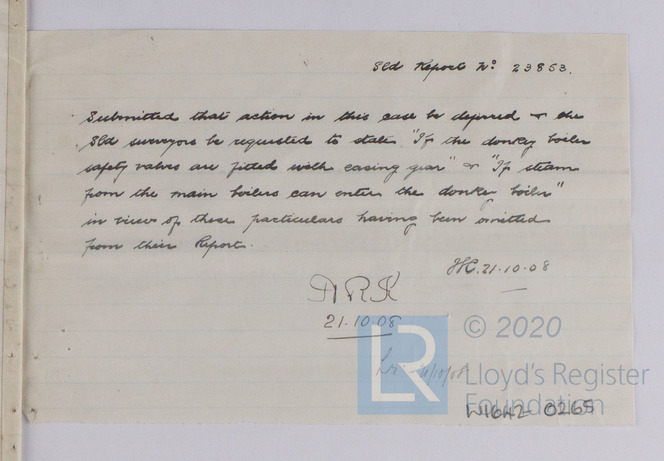 Sld Report No 23853.
Submitted that action in this case be deferred & the
Sld surveyors be requested to state "If the donkey boiler
safety valves are fitted with easing gear" & "If steam
from the main boilers can enter the donkey boiler"
in view of these particulars having been omitted
from their Report.
21.10.08
ARK
21.10.08
LR
© 2020
Lloyd's Register
Foundation
W1642-0265